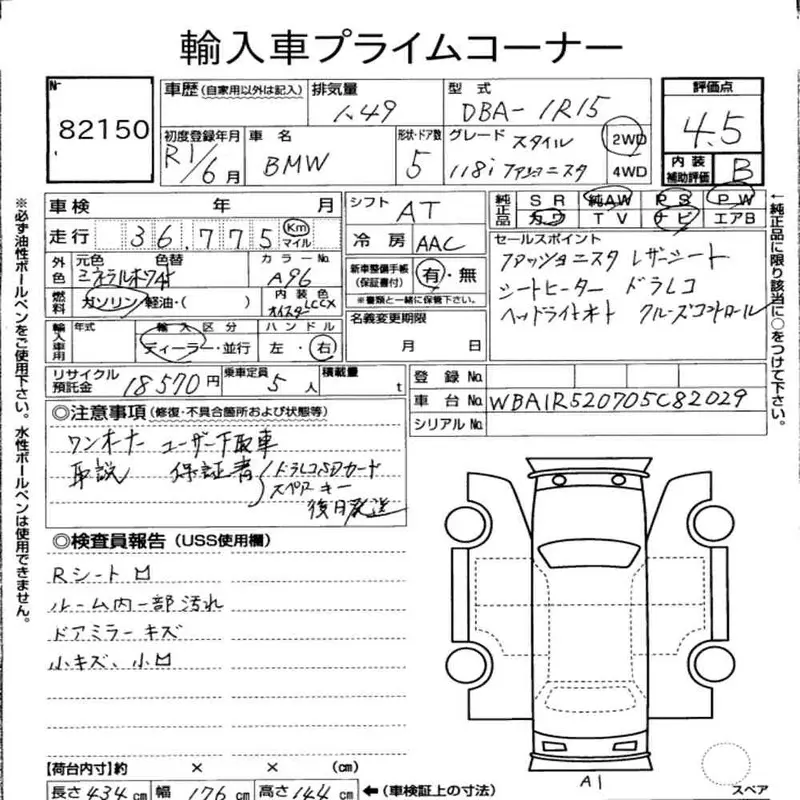 輸入車プライムコーナー
No 82150
車歴 (自家用以外は記入) 排気量 1.49 型式 DBA-1R15 評価点 4.5
初度登録年月 R1/6月 車名 BMW 形状・ドア数 5 グレード スタイル 118i ファショニスタ 2WD 4WD
内装補助評価 B
車検 年 月 シフト AT 純正品 SR 純AW PS PW
カワ TV ナビ エアB
走行 36,775 Km マイル 冷房 AAC
セールスポイント
ファッショニスタ レザーシート
シートヒーター ドラレコ
ヘッドライトオト クルーズコントロール
外色 元色 色替 ミネラルホワイト カラーNo. A96
新車整備手帳(保証書付) 有・無
※書類と一緒に保管下さい。
燃料 ガソリン 軽油・( ) 内装色 オイスター LCCX
名義変更期限 月 日
輸入車用 年式 輸入区分 ディーラー・並行 ハンドル 左・右
リサイクル預託金 18570円 乗車定員 5人 積載量 t
登録No.
車台No. WBA1R520705C82029
シリアルNo.
◎注意事項(修復・不具合箇所および状態等)
ワンオーナー ユーザー下取車
取説 保証書 ドラレコSDカード
スペアキー
後日発送
◎検査員報告(USS使用欄)
Rシート
ルーム内一部汚れ
ドアミラーキズ
小キズ、小
A1
スペア
【荷台内寸】約 × × (cm)
長さ 434cm 幅 176cm 高さ 144cm ←(車検証上の寸法)
※必ず油性ボールペンをご使用下さい。水性ボールペンは使用できません。
←純正品に限り該当に○をつけて下さい。